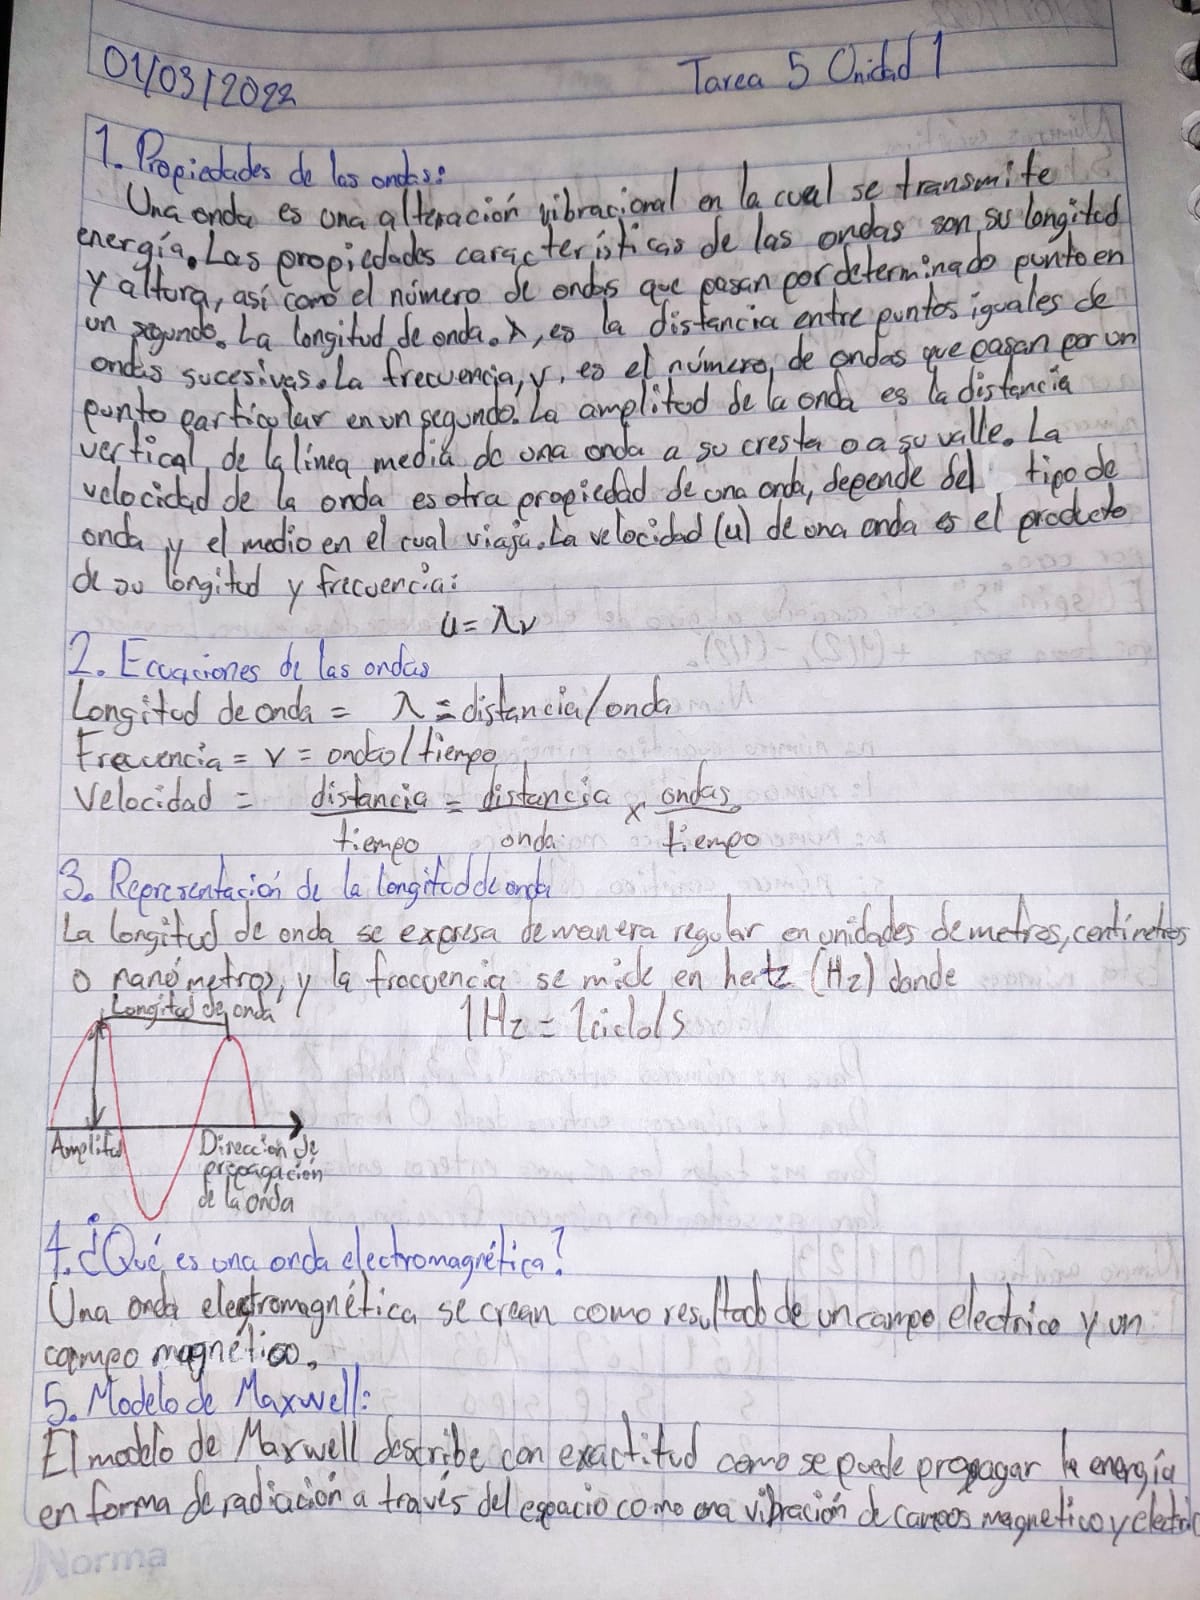 01/03/2022
Tarea 5 Unidad 1
1. Propiedades de las ondas:
Una onda es una alteración vibracional en la cual se transmite
energía. Las propiedades características de las ondas son su longitud
y altura, así como el número de ondas que pasan por determinado punto en
un segundo. La longitud de onda, λ, es la distancia entre puntos iguales de
ondas sucesivas. La frecuencia, ν, es el número de ondas que pasan por un
punto particular en un segundo. La amplitud de la onda es la distancia
vertical de la línea media de una onda a su cresta o a su valle. La
velocidad de la onda es otra propiedad de una onda, depende del tipo de
onda y el medio en el cual viaja. La velocidad (u) de una onda es el producto
de su longitud y frecuencia:
u = λν
2. Ecuaciones de las ondas
Longitud de onda = λ = distancia/onda
Frecuencia = ν = ondas/tiempo
Velocidad = distancia = distancia x ondas
tiempo onda tiempo
3. Representación de la longitud de onda
La longitud de onda se expresa de manera regular en unidades de metros, centímetros
o nanómetros, y la frecuencia se mide en hertz (Hz) donde
Longitud de onda
1 Hz = 1 ciclo/s
Amplitud
Dirección de
propagación
de la onda
4. ¿Qué es una onda electromagnética?
Una onda electromagnética se crean como resultado de un campo electrico y un
campo magnético.
5. Modelo de Maxwell:
El modelo de Maxwell describe con exactitud como se puede propagar la energía
en forma de radiación a través del espacio como una vibración de campos magnetico y electric
Norma